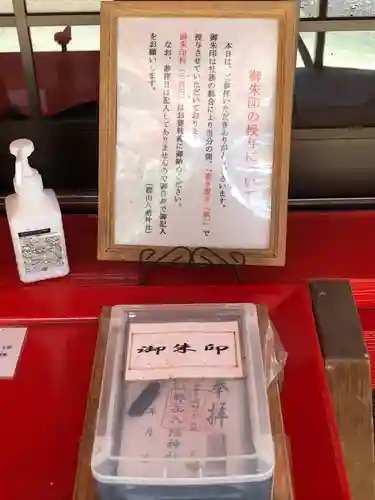 御朱印の授与について
本日は、ご参拝いただきありがとうございます。
御朱印は社務の都合により当分の間、「書き置き(紙)」で
授与させていただいております。
御朱印料(三百円)はお賽銭箱に御納めください。
なお、参拝日は記入してありませんので御自身で御記入
をお願いします。
(郡山八幡神社)
御朱印
奉拝
郡山八幡神社
年 月